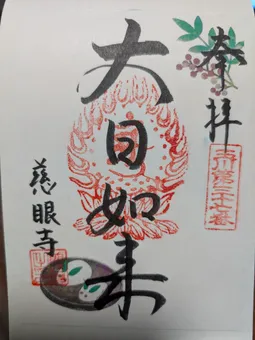 奉拝
玉川第三十七番
大日如来
慈眼寺